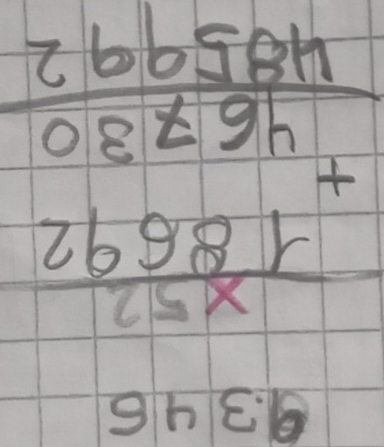 9346
× 52
18692
+
46730
485992